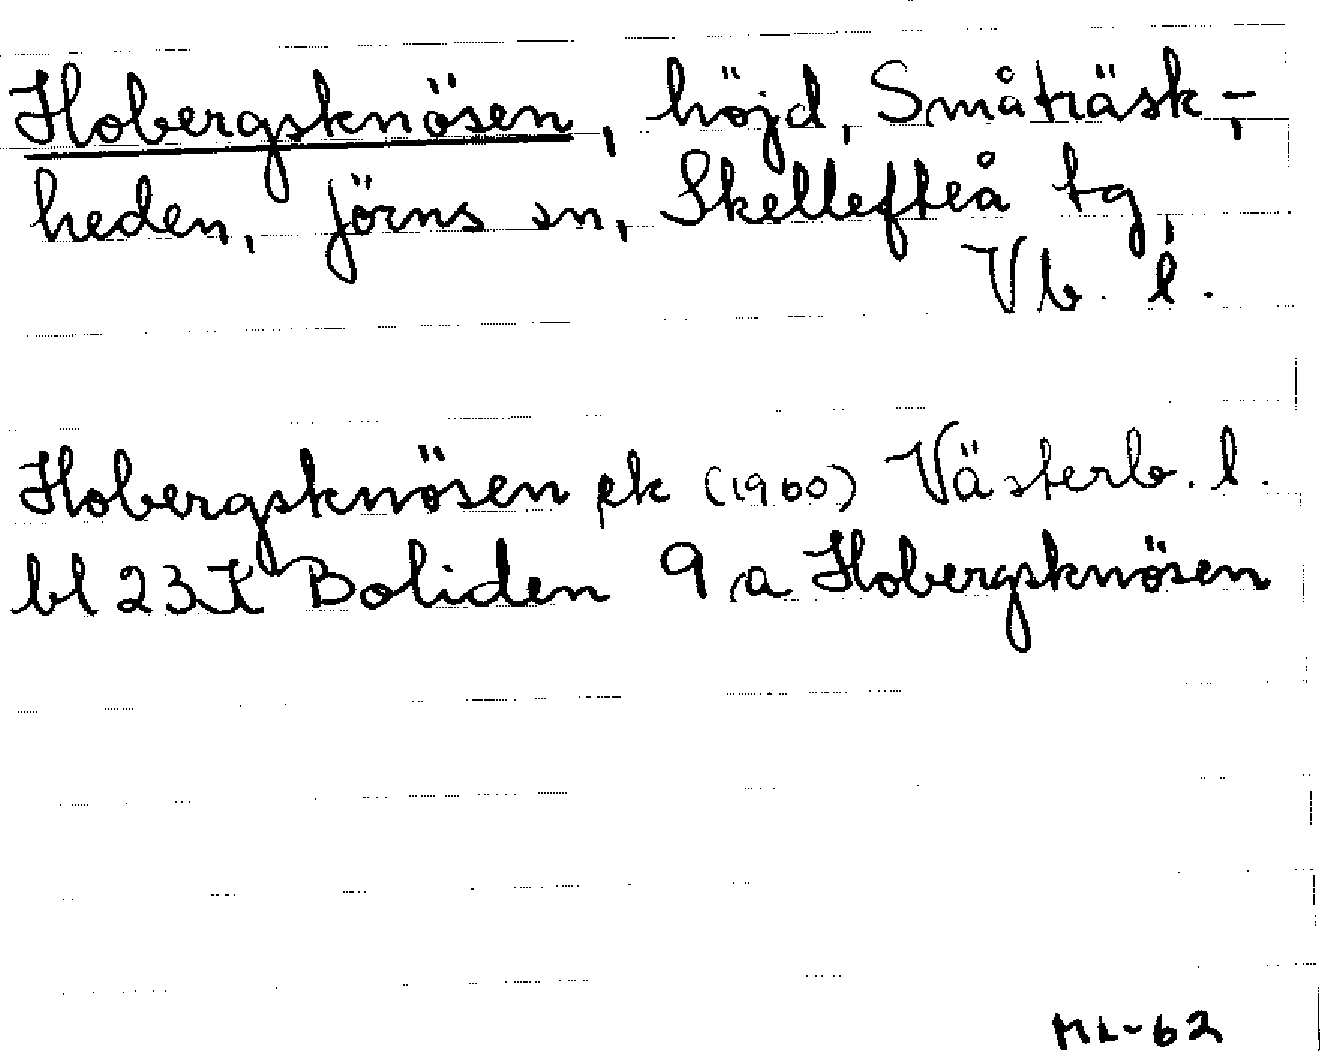 Hobergsknösen, höjd, Småträsk-,
heden, Jörns sn, Skellefteå tg,
Vb. l.
Hobergsknösen ek (1960) Västerb. l.
bl 23K Boliden 9 a Hobergsknösen
ML-62